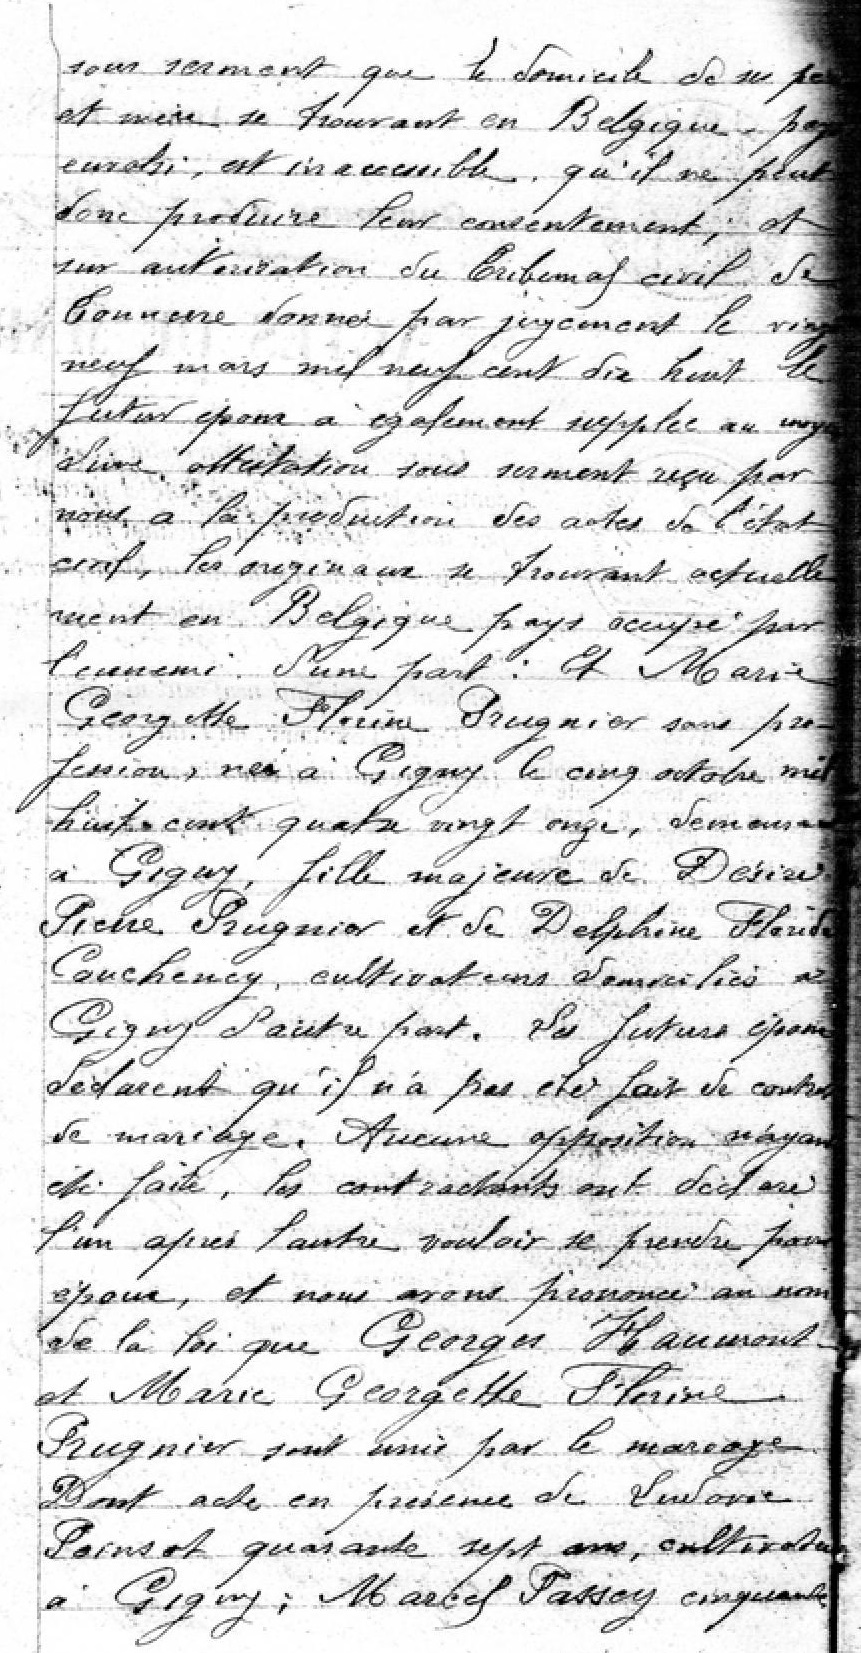 sous serment que le domicile de ses père
et mère se trouvant en Belgique, pays
envahi, est inaccessible, qu'il ne peut
donc produire leur consentement; et
sur autorisation du Tribunal civil de
Tonnerre donnée par jugement le vingt
neuf mars mil neuf cent dix huit le
futur époux a également supplée au moyen
d'une attestation sous serment reçu par
nous a la production des actes de l'état
civil, les originaux se trouvant actuelle
ment en Belgique pays occupé par
l'ennemi. D'une part: Et Marie
Georgette Florine Prugnier sans pro-
fession, née à Gigny le cinq octobre mil
huit cent quatre vingt onze, demeurant
à Gigny, fille majeure de Désiré
Pierre Prugnier et de Delphine Floride
Cauchency, cultivateurs domiciliés à
Gigny d'autre part. Les futurs époux
déclarent qu'il n'a pas été fait de contrat
de mariage. Aucune opposition n'ayant
été faite, les contractants ont déclaré
l'un après l'autre vouloir se prendre pour
époux, et nous avons prononcé au nom
de la loi que Georges Haumont
et Marie Georgette Florine
Prugnier sont unis par le mariage
Dont acte en présence de Ludovic
Poinsot quarante sept ans, cultivateur
à Gigny; Marcel Passey cinquante